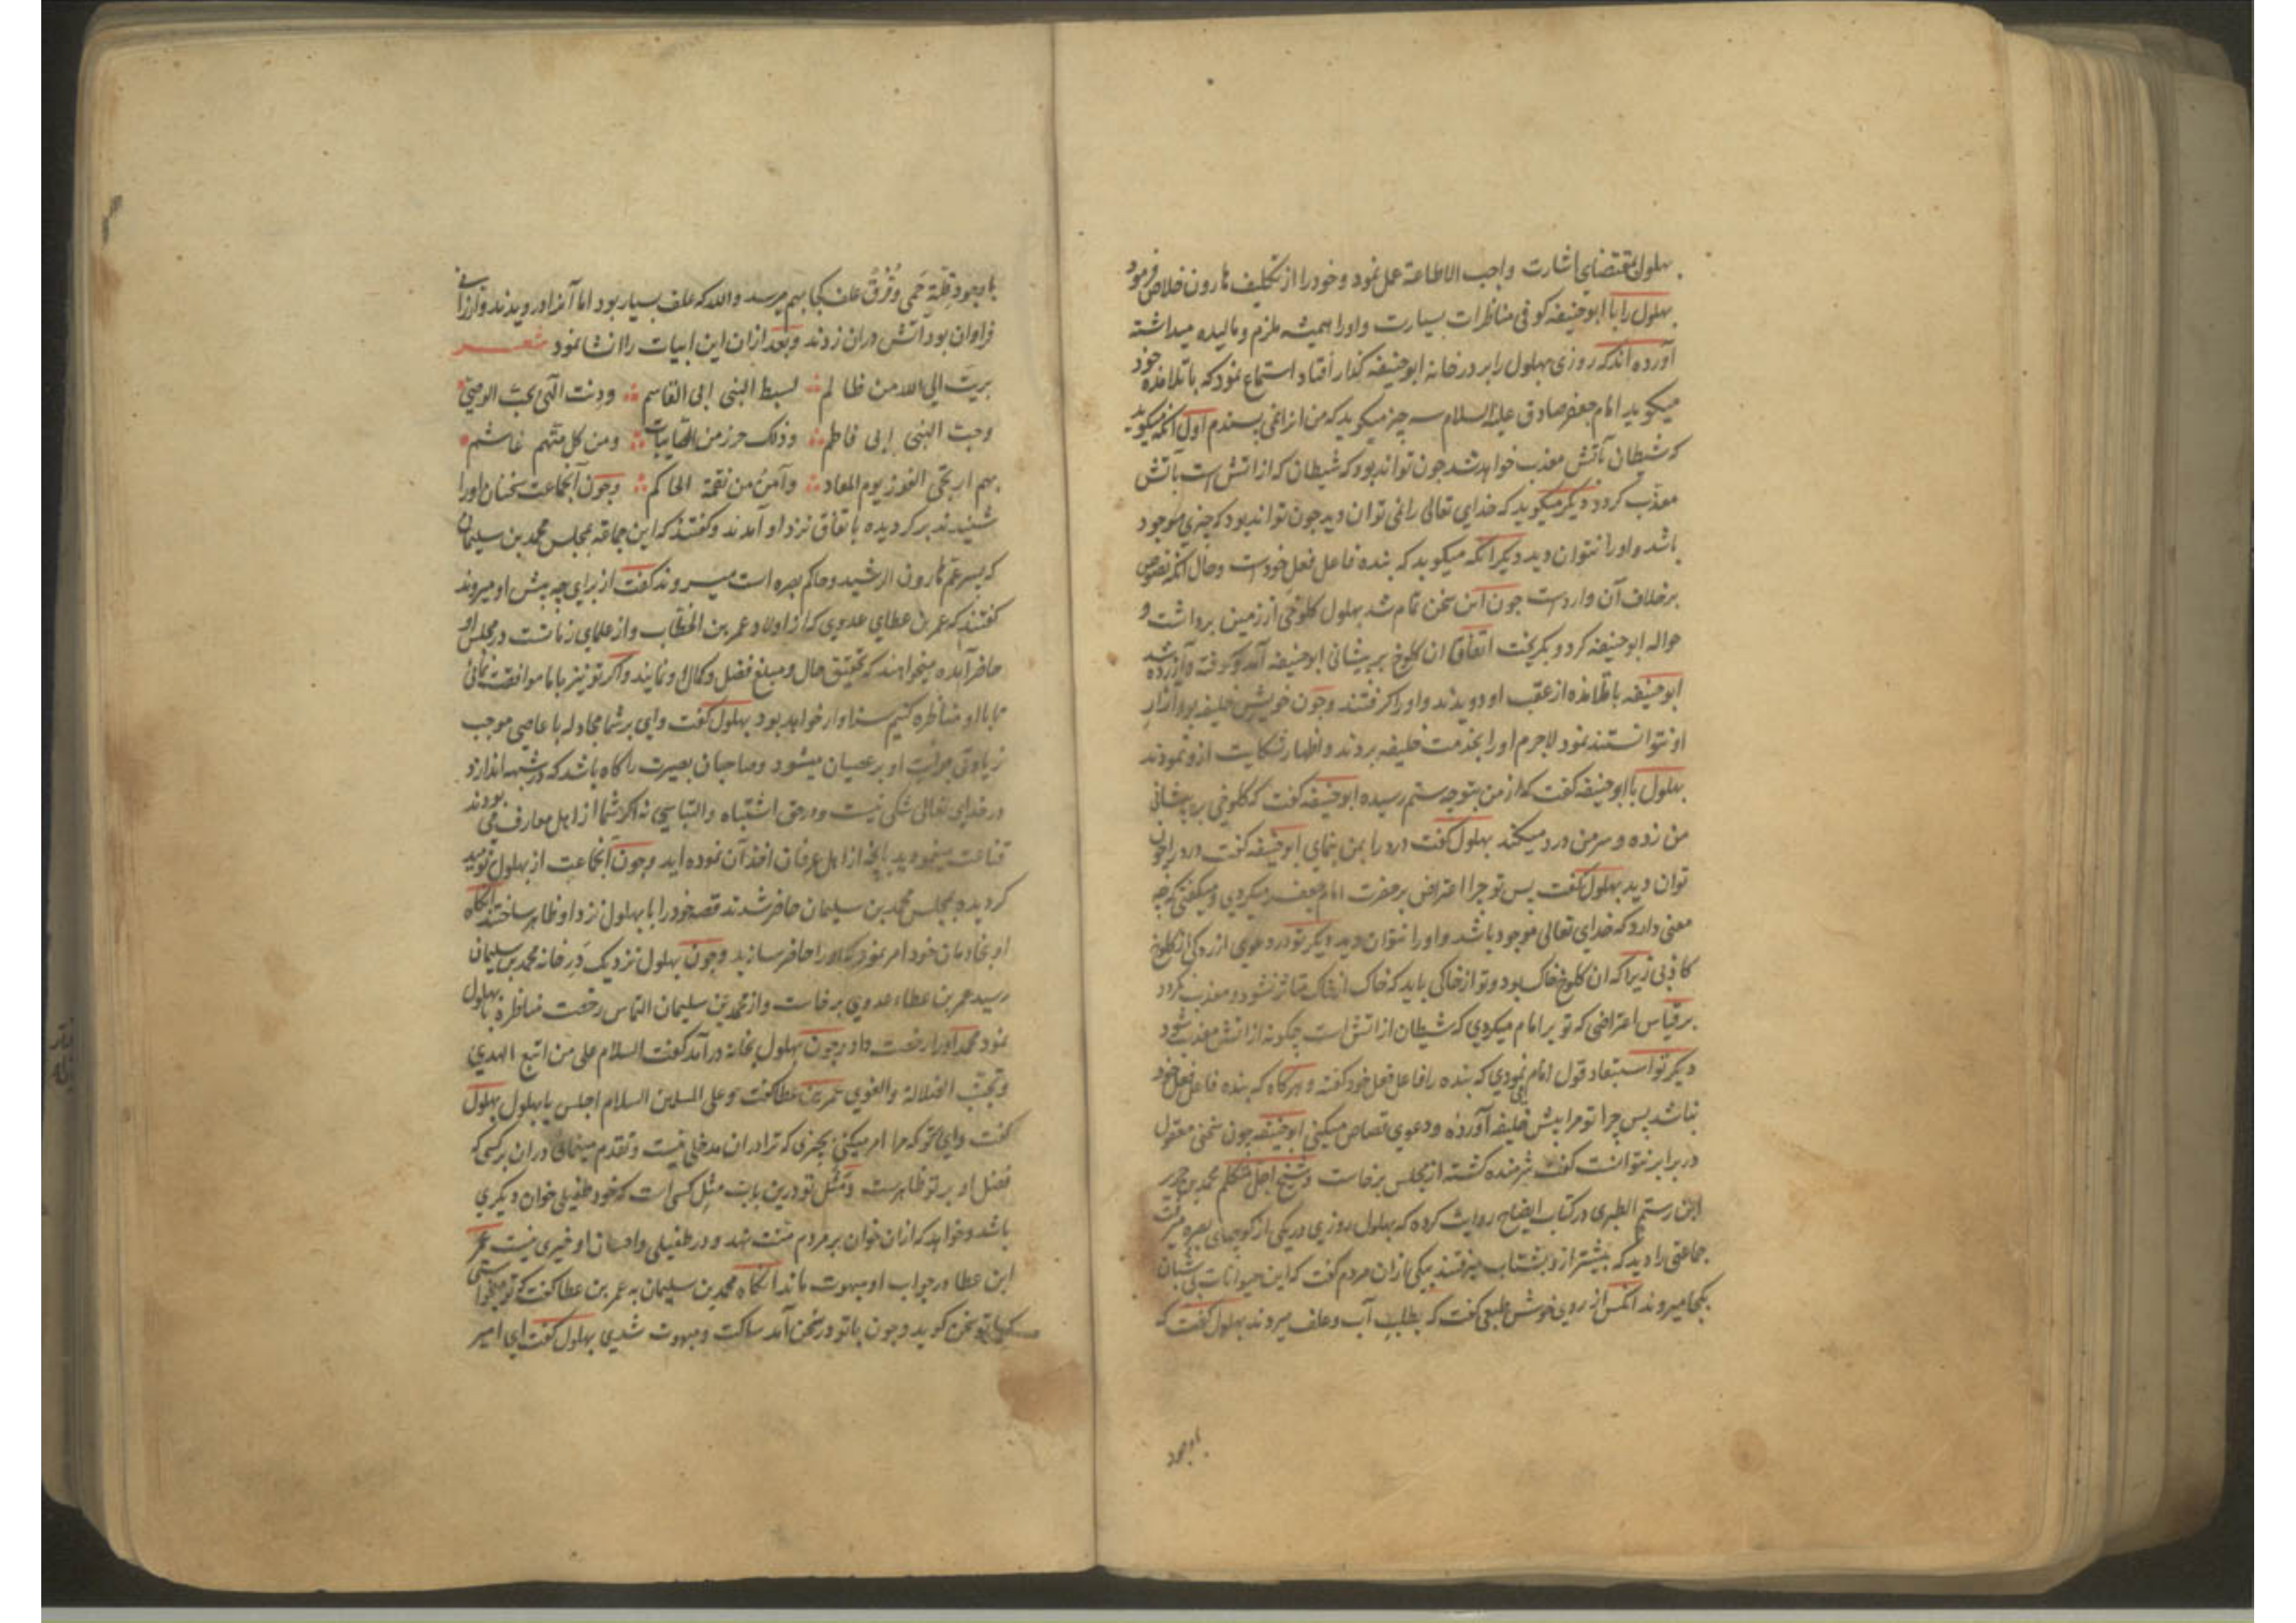 بهلول بمقتضای اشارت واجب الاطاعة عمل نمود و خود را از تکلیف هارون خلاص فرمود
بهلول را با ابو حنیفه کوفی مناظرات بسیارت و او را همیشه ملزم و مالیده میداشته
آورده اند که روزی بهلول را بر در خانه ابو حنیفه گذار افتاد استماع نمود که با تلامذه خود
میکوید امام جعفر صادق علیه السلام سه چیز میکوید که من از انمی پسندم اول آنکه میکوید
که شیطان بآتش معذب خواهد شد چون تواند بود که شیطان که از اتش است باتش
معذب کردد دیکر میکوید که خدای تعالی را نمی توان دید چون تواند بود که چیزی موجود
باشد و او را نتوان دید دیکر آنکه میکوید که بنده فاعل فعل خودست و حال آنکه نصوص
بر خلاف آن واردست چون این سخن تمام شد بهلول کلوخی از زمین برداشت و
حواله ابو حنیفه کرد و بکریخت اتفاقا ان کلوخ بر پیشانی ابو حنیفه آمد و کوفته و آزرده شد
ابو حنیفه با تلامذه از عقب او دویدند و او را کرفتند و چون خویش خلیفه بود آزار
او نتوانستند نمود لاجرم او را بخدمت خلیفه بردند و اظهار شکایت ازو نمودند
بهلول با ابو حنیفه کفت که از من بتو چه ستم رسیده ابو حنیفه کفت که کلوخی بر پیشانی
من زده و سر من درد میکند بهلول کفت درد را بمن بنمای ابو حنیفه کفت درد را چون
توان دید بهلول کفت پس تو چرا اعتراض بر حضرت امام جعفر میکردی و میکفتی که چه
معنی دارد که خدای تعالی موجود باشد و او را نتوان دید دیکر تو در دعوی ازردکی از کلوخ
کاذبی زیرا که ان کلوخ خاک بود و تو از خاکی باید که خاک از خاک متاثر نشود و معذب نکردد
بر قیاس اعتراضی که تو بر امام میکردی که شیطان از اتش است چکونه از اتش معذب شود
دیکر تو استبعاد قول امام نمودی که بنده را فاعل فعل خود کفته و هرکاه که بنده فاعل فعل خود
نباشد پس چرا تو مرا پیش خلیفه آوردهٔ و دعوی قصاص میکنی ابو حنیفه چون سخنی معقول
در برابر نتوانست کفت شرمنده کشته از مجلس برخاست و شیخ اجل متکلم محمد بن جریر
ابن رستم الطبری در کتاب ایضاح روایت کرده که بهلول روزی در یکی از کوچهای بصره میرفت
جماعتی را دید که پیشتر ازو بشتاب میرفتند بیکی از ان مردم کفت که این حیوانات بی شبان
بکجا میروند آنکس از روی خوش طبعی کفت که بطلب آب و علف میروند بهلول کفت که
باوجود
باوجود قلة حمی و قرق علف کجا بهم میرسد والله که علف بسیار بود اما آنرا درویدند و ارزانی
فراوان بود اتش دران زدند و بعد ازان این ابیات را انشا نمود شعر
بریت الی الله من ظالم لسبط النبی ابی القاسم ودنت الهی بحب الوصی
وحب النبی ابی فاطم وذلک حرز من النایبات ومن کل متهم غاشم
بهم ارتجی الفوز یوم المعاد وآمن من نقمة الحاکم و چون آنجماعت سخنان او را
شنیدند بر کردیده باتفاق نزد او آمدند و کفتند که این جماعة بمجلس محمد بن سلیمان
که پسر عم هارون الرشید و حاکم بصره است میروند کفت از برای چه پیش او میروند
کفتند که عمر بن عطای عدوی که از اولاد عمر بن الخطاب و از علمای زمانست در مجلس او
حاضر آمده میخواهند که تحقیق حال و مبلغ فضل و کمال او نمایند و اکر تو نیز با ما موافقت نمائی
تا با او مناظره کنیم سزاوار خواهد بود بهلول کفت وای بر شما مجادله با عاصی موجب
زیادتی جرأت او بر عصیان میشود و صاحبان بصیرت را کاه باشد که در شبهه اندازد
در خدای تعالی شکی نیست و در حق اشتباه و التباسی نه اکر شما از اهل معارف می بودند
قناعت مینمودید بانچه از اهل عرفان اخذ آن نموده اید و چون آنجماعت از بهلول نومید
کردیده بمجلس محمد بن سلیمان حاضر شدند قصه خود را با بهلول نزد او ظاهر ساختند آنکاه
او بخادمان خود امر نمود که او را حاضر سازید و چون بهلول نزدیک در خانه محمد بن سلیمان
رسید عمر بن عطاء عدوی برخاست و از محمد بن سلیمان التماس رخصت مناظره بهلول
نمود محمد او را رخصت داد و چون بهلول بخانه درآمد کفت السلام علی من اتبع الهدی
وتجنب الضلالة والغوی عمر بن عطا کفت وعلی المسلمین السلام اجلس یا بهلول بهلول
کفت وای بتو که مرا امر میکنی بچیزی که ترا دران مدخلی نیست و تقدم مینمائی دران برکسی که
فضل او بر تو ظاهرست و مثل تو درین بابت مثل کسی است که خود طفیلی خوان دیکری
باشد و خواهد که ازان خوان بر مردم منت نهد و در طفیلی و احسان او خیری نیست عمر
ابن عطا در جواب او مبهوت ماند آنکاه محمد بن سلیمان به عمر بن عطا کفت که تو میخواستی
که با تو سخن کوید و چون با تو در سخن آمد ساکت و مبهوت شدی بهلول کفت ای امیر